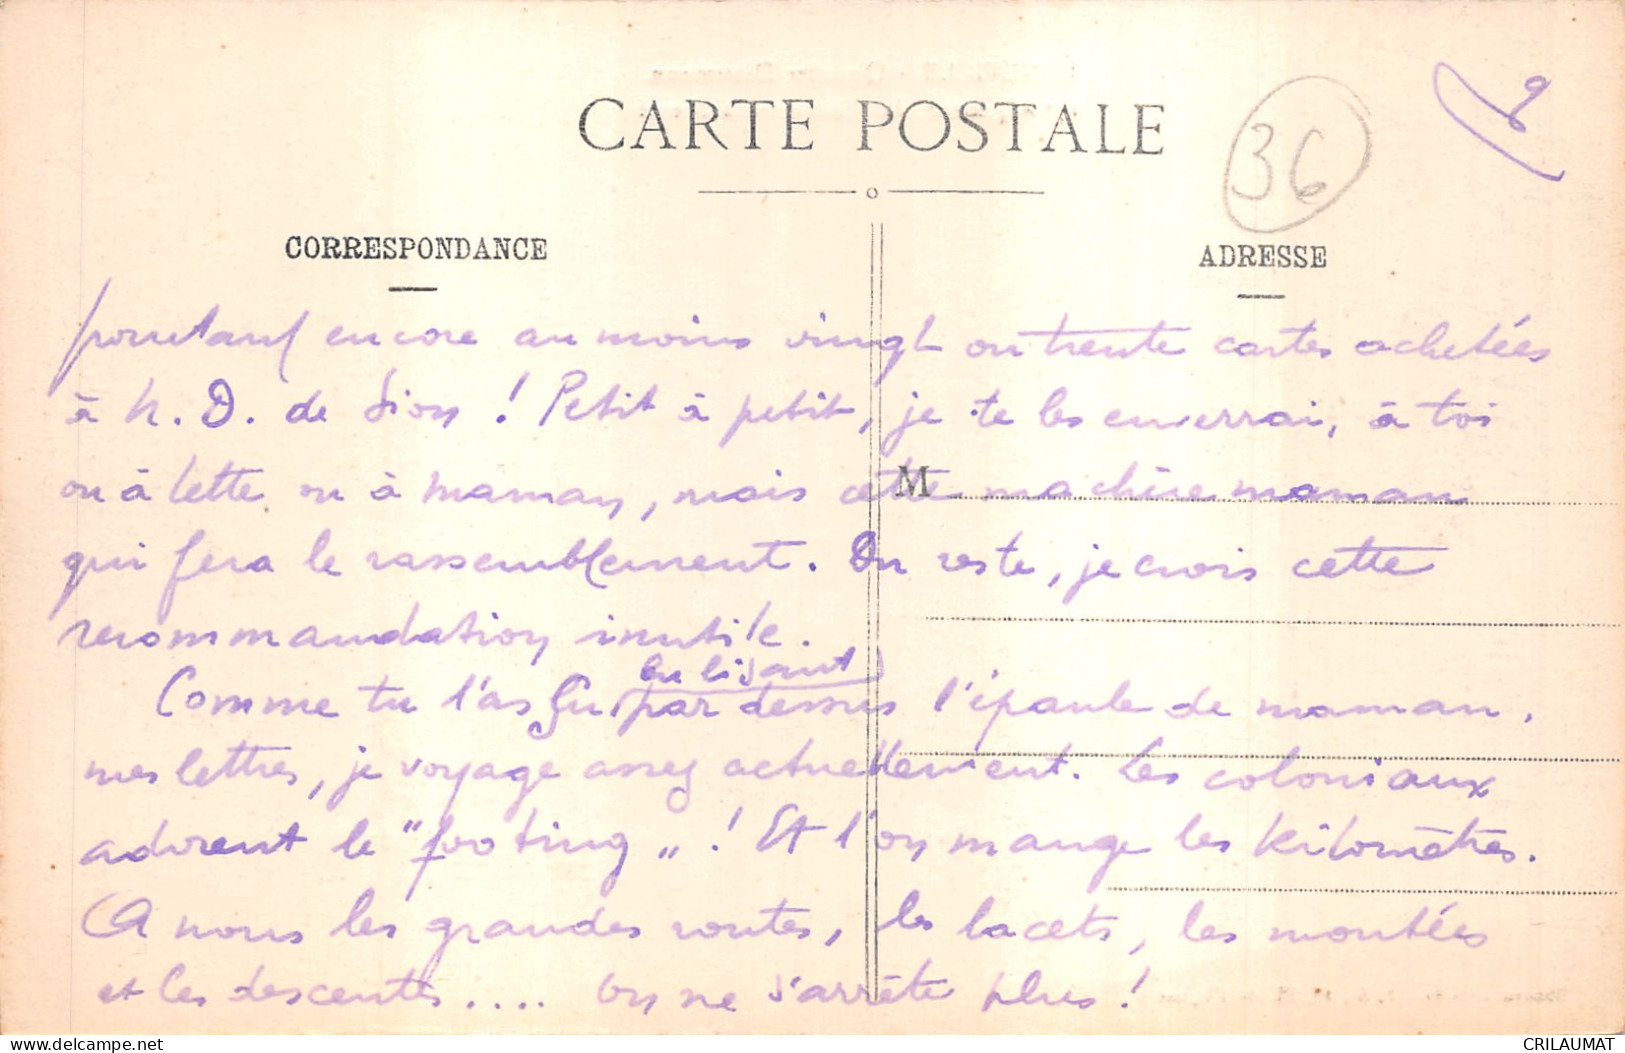 CARTE POSTALE
36
9
CORRESPONDANCE
ADRESSE
pourtant encore au moins vingt ou trente cartes achetées
à N. D. de Sion ! Petit à petit, je te les enverrai, à toi
ou à lette ou à maman, mais cette ma chère maman
M
qui fera le rassemblement. Du reste, je crois cette
recommandation inutile.
en lisant
Comme tu l'as lu, par dessus l'épaule de maman,
mes lettres, je voyage assez actuellement. Les coloniaux
adorent le "footing" ! Et l'on mange les kilomètres.
A nous les grandes routes, les lacets, les montées
et les descentes.... on ne s'arrête plus !
www.delcampe.net
CRILAUMAT